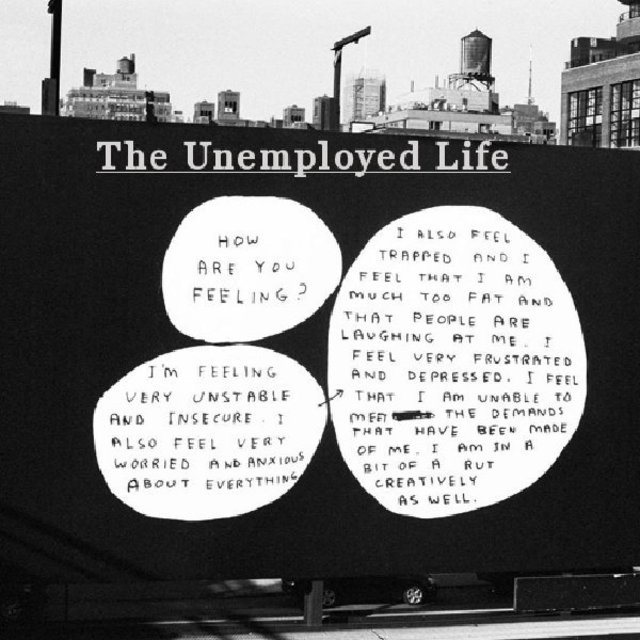 The Unemployed Life
HOW
ARE YOU
FEELING?
I'M FEELING
VERY UNSTABLE
AND INSECURE. I
ALSO FEEL VERY
WORRIED AND ANXIOUS
ABOUT EVERYTHING
I ALSO FEEL
TRAPPED AND I
FEEL THAT I AM
MUCH TOO FAT AND
THAT PEOPLE ARE
LAUGHING AT ME. I
FEEL VERY FRUSTRATED
AND DEPRESSED. I FEEL
THAT I AM UNABLE TO
MEET THE DEMANDS
THAT HAVE BEEN MADE
OF ME. I AM IN A
BIT OF A RUT
CREATIVELY
AS WELL.